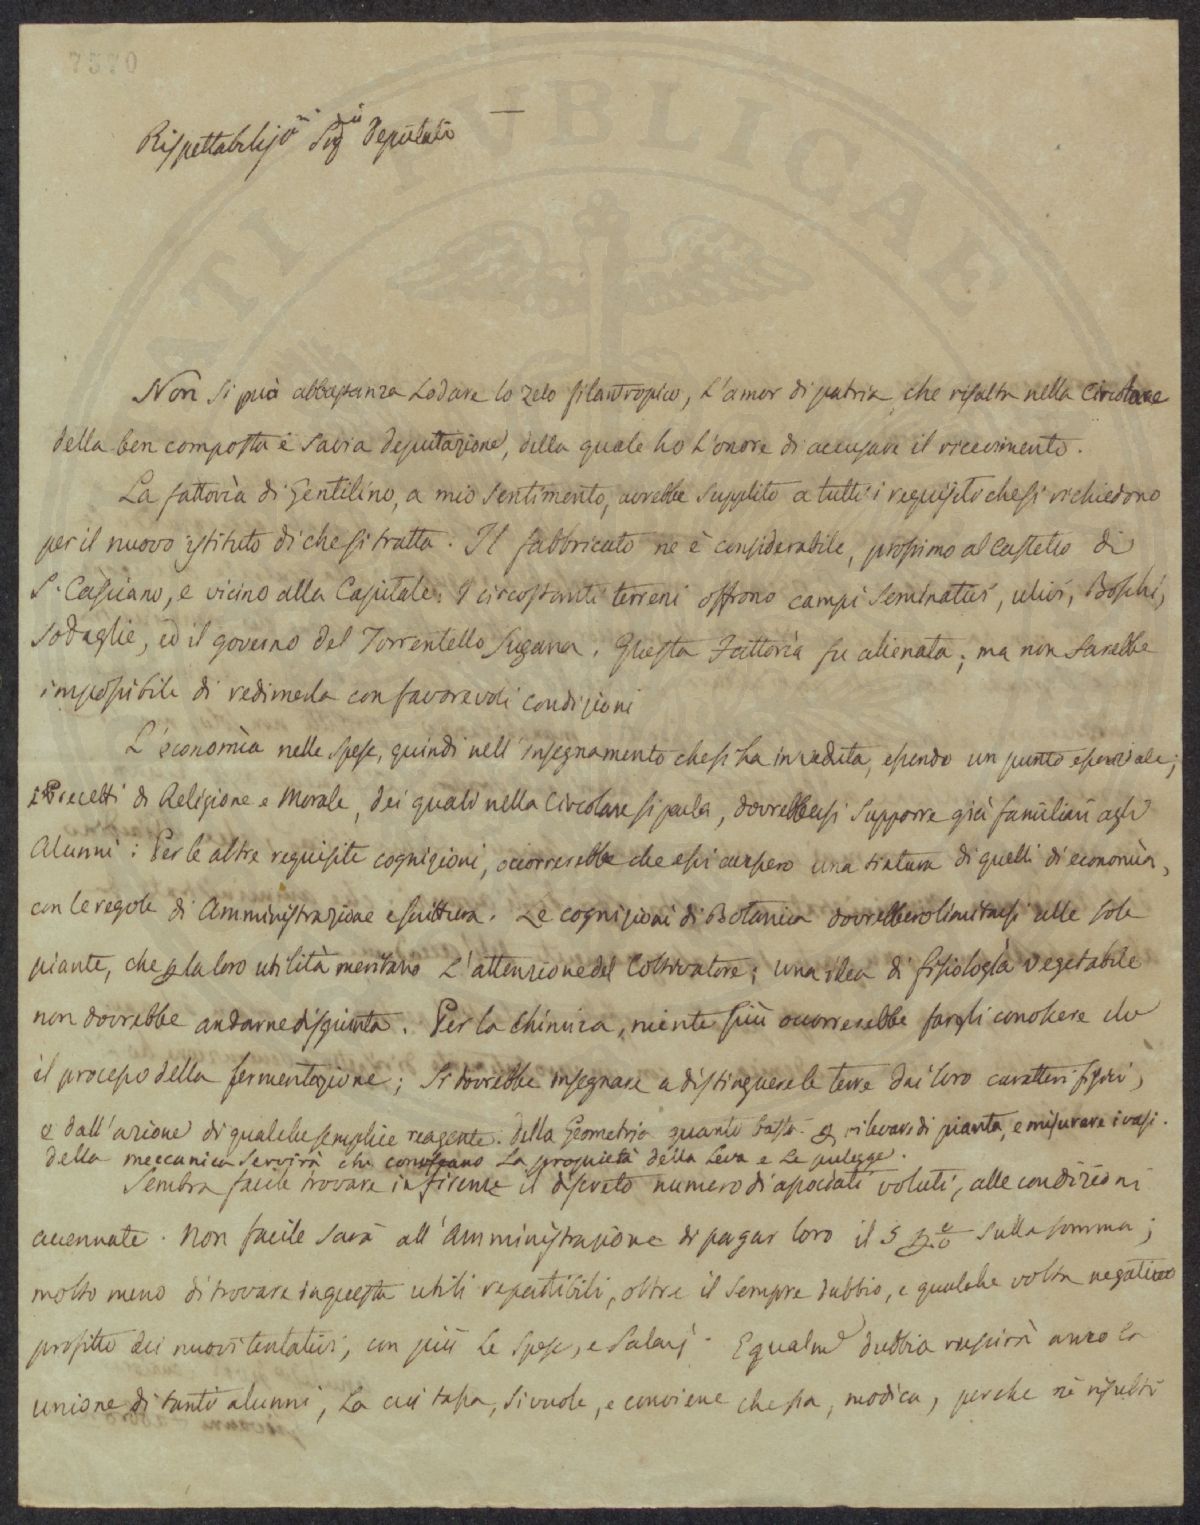 7570
Rispettabilissi.mi Sig.ri Deputati
Non si può abbastanza Lodare lo zelo filantropico, L'amor di patria, che risalta nella Circolare
della ben composta e savia deputazione, della quale ho L'onore di accusare il ricevimento.
La fattorìa di Gentilino, a mio sentimento, avrebbe supplito a tutti i requisiti che si richiedono
per il nuovo istituto di che si tratta. Il fabbricato ne è considerabile, prossimo al Castello di
S. Casciano, e vicino alla Capitale. I circostanti terreni offrono campi seminativi, ulivi, Boschi,
sodaglie, ed il governo del Torrentello Sugana. Questa Fattorìa fu alienata; ma non sarebbe
impossibile di redimerla con favorevoli condizioni
L'economìa nelle spese, quindi nell'insegnamento che si ha in vedita, essendo un punto essenziale;
i Precetti di Religione e Morale, dei quali nella Circolare si parla, dovrebbersi supporre già familiari agli
Alunni: Per le altre requisite cognizioni, occorrerebbe che essi avessero una tintura di quelli di economìa,
con le regole di Amministrazione e scrittura. Le cognizioni di Botanica dovrebbero limitarsi alle sole
piante, che p la loro utilità meritano L'attenzione del Coltivatore; una idea di fisiologìa vegetabile
non dovrebbe andarne disgiunta. Per la Chimica, niente più occorrerebbe fargli conoscere che
il processo della fermentazione; si dovrebbe insegnare a distinguere le terre dai loro caratteri fisici,
e dall'azione di qualche semplice reagente. della Geometria quanto basta p rilevare di pianta, e misurare i vasi.
della meccanica servirà che conoscano La proprietà della Leva e Le pulegge.
Sembra facile trovare in firenze il discreto numero di associati voluti, alle condizioni
accennate. Non facile sarà all'Amministrazione di pagar loro il 5 p.co sulla somma;
molto meno di trovare in questa utili repartibili, oltre il sempre dubbio, e qualche volta negativo
profitto dei nuovi tentativi, con più Le spese, e salarj. Egualme dubbia riuscirà anco la
unione di tanti alunni, La cui tassa, si vuole, e conviene che sia, modica, perche nè risulti